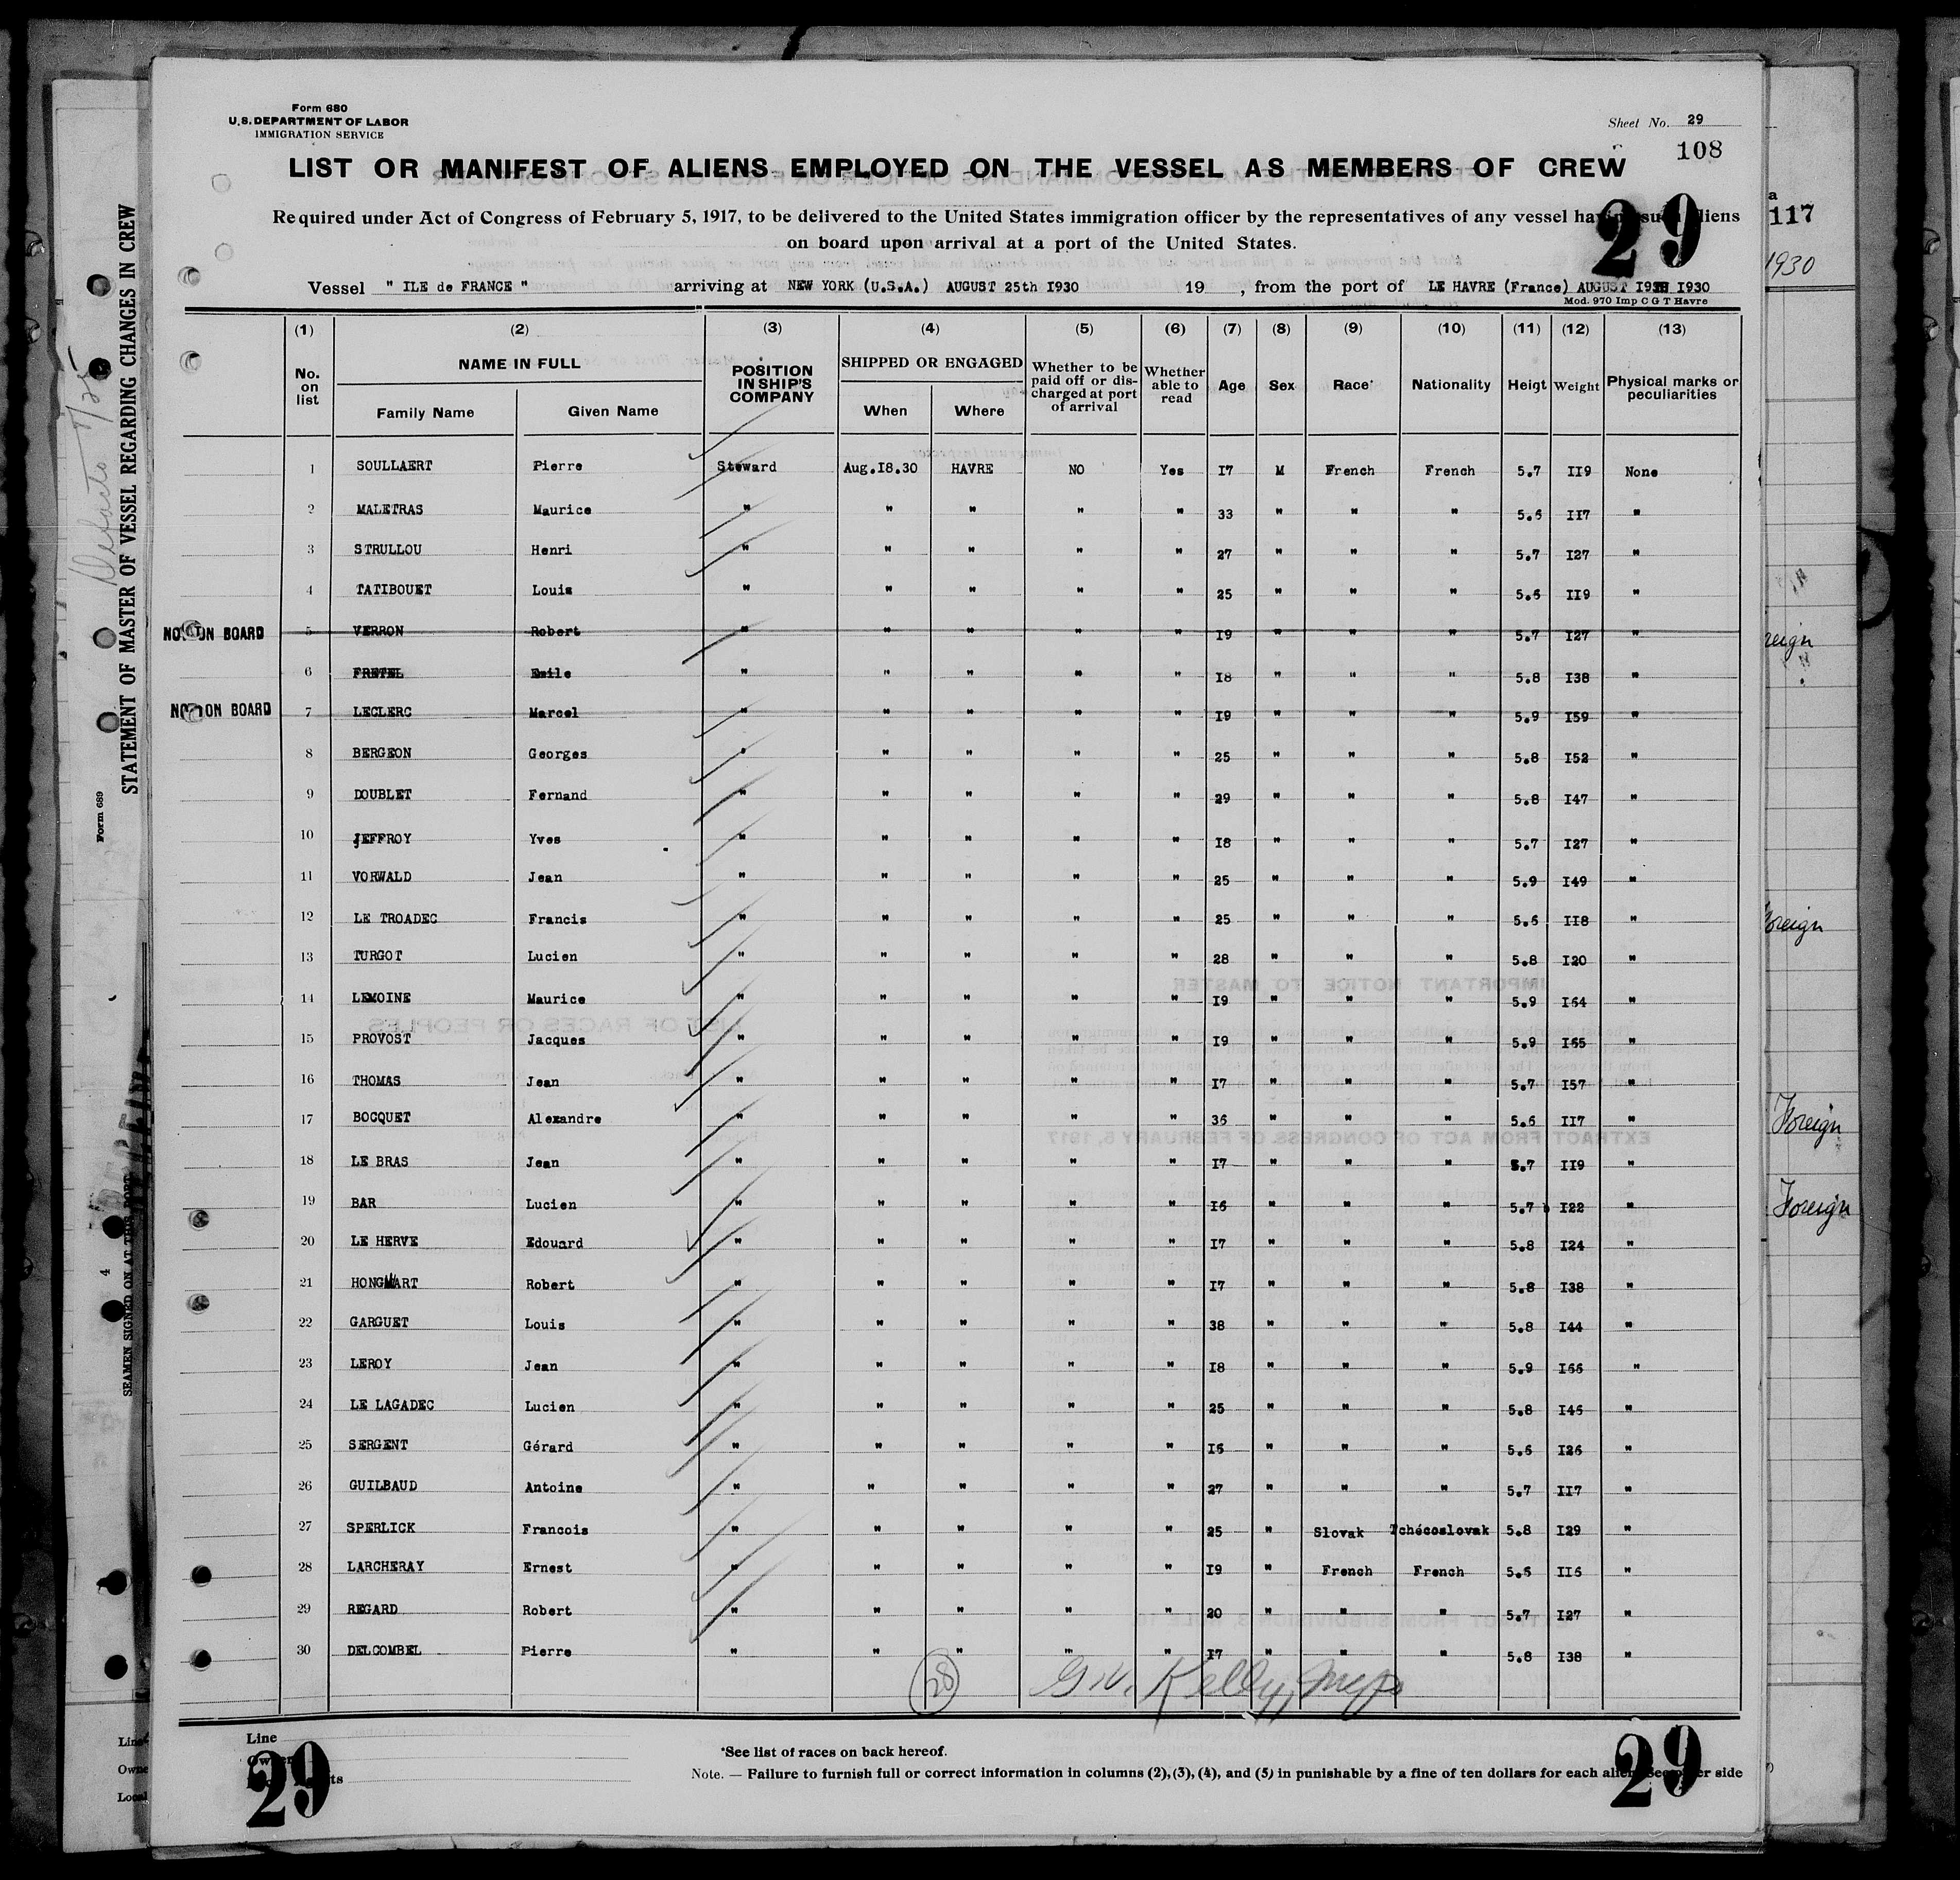 Form 680
U.S. DEPARTMENT OF LABOR
IMMIGRATION SERVICE
Sheet No. 29
108
LIST OR MANIFEST OF ALIENS EMPLOYED ON THE VESSEL AS MEMBERS OF CREW
Required under Act of Congress of February 5, 1917, to be delivered to the United States immigration officer by the representatives of any vessel having such aliens
on board upon arrival at a port of the United States.
29
Vessel " ILE de FRANCE " arriving at NEW YORK (U.S.A.) AUGUST 25th I930 19 , from the port of LE HAVRE (France) AUGUST I930
Mod. 970 Imp C G T Havre
(1) (2) (3) (4) (5) (6) (7) (8) (9) (10) (11) (12) (13)
No. on list NAME IN FULL Family Name Given Name POSITION IN SHIP'S COMPANY SHIPPED OR ENGAGED When Where Whether to be paid off or discharged at port of arrival Whether able to read Age Sex Race* Nationality Heigt Weight Physical marks or peculiarities
1 SOULLAERT Pierre Steward Aug.I8.30 HAVRE NO Yes I7 M French French 5.7 II9 None
2 MALETRAS Maurice " " " " " 33 " " " 5.6 II7 "
3 STRULLOU Henri " " " " " 27 " " " 5.7 I27 "
4 TATIBOUET Louis " " " " " 25 " " " 5.6 II9 "
NOT ON BOARD 5 VERRON Robert " " " " " I9 " " " 5.7 I27 "
6 FRETEL Emile " " " " " I8 " " " 5.8 I38 "
NOT ON BOARD 7 LECLERC Marcel " " " " " I9 " " " 5.9 I59 "
8 BERGEON Georges " " " " " 25 " " " 5.8 I52 "
9 DOUBLET Fernand " " " " " 29 " " " 5.8 I47 "
10 JEFFROY Yves " " " " " I8 " " " 5.7 I27 "
11 VORWALD Jean " " " " " 25 " " " 5.9 I49 "
12 LE TROADEC Francis " " " " " 25 " " " 5.6 II8 "
13 TURGOT Lucien " " " " " 28 " " " 5.8 I20 "
14 LEMOINE Maurice " " " " " I9 " " " 5.9 I64 "
15 PROVOST Jacques " " " " " I9 " " " 5.9 I65 "
16 THOMAS Jean " " " " " I7 " " " 5.7 I57 "
17 BOCQUET Alexandre " " " " " 36 " " " 5.6 II7 "
18 LE BRAS Jean " " " " " I7 " " " 5.7 II9 "
19 BAR Lucien " " " " " I6 " " " 5.7 I22 "
20 LE HERVE Edouard " " " " " I7 " " " 5.8 I24 "
21 Robert " " " " " I7 " " " 5.8 I38 "
22 GARGUET Louis " " " " " 38 " " " 5.8 I44 "
23 LEROY Jean " " " " " I8 " " " 5.9 I66 "
24 LE LAGADEC Lucien " " " " " 25 " " " 5.8 I46 "
25 SERGENT Gérard " " " " " I6 " " " 5.6 I26 "
26 GUILBAUD Antoine " " " " " 27 " " " 5.7 II7 "
27 SPERLICK Francois " " " " " 25 " Slovak Tchécoslovak 5.8 I29 "
28 LARCHERAY Ernest " " " " " I9 " French French 5.6 II6 "
29 REGARD Robert " " " " " 20 " " " 5.7 I27 "
30 DELCOMBEL Pierre " " " " " I7 " " " 5.8 I38 "
28 Kelly
Line
29
*See list of races on back hereof.
Note. — Failure to furnish full or correct information in columns (2),(3), (4), and (5) in punishable by a fine of ten dollars for each alien. See other side
29
STATEMENT OF MASTER OF VESSEL REGARDING CHANGES IN CREW
Form 689
4
117
1930
Foreign
Foreign
Foreign